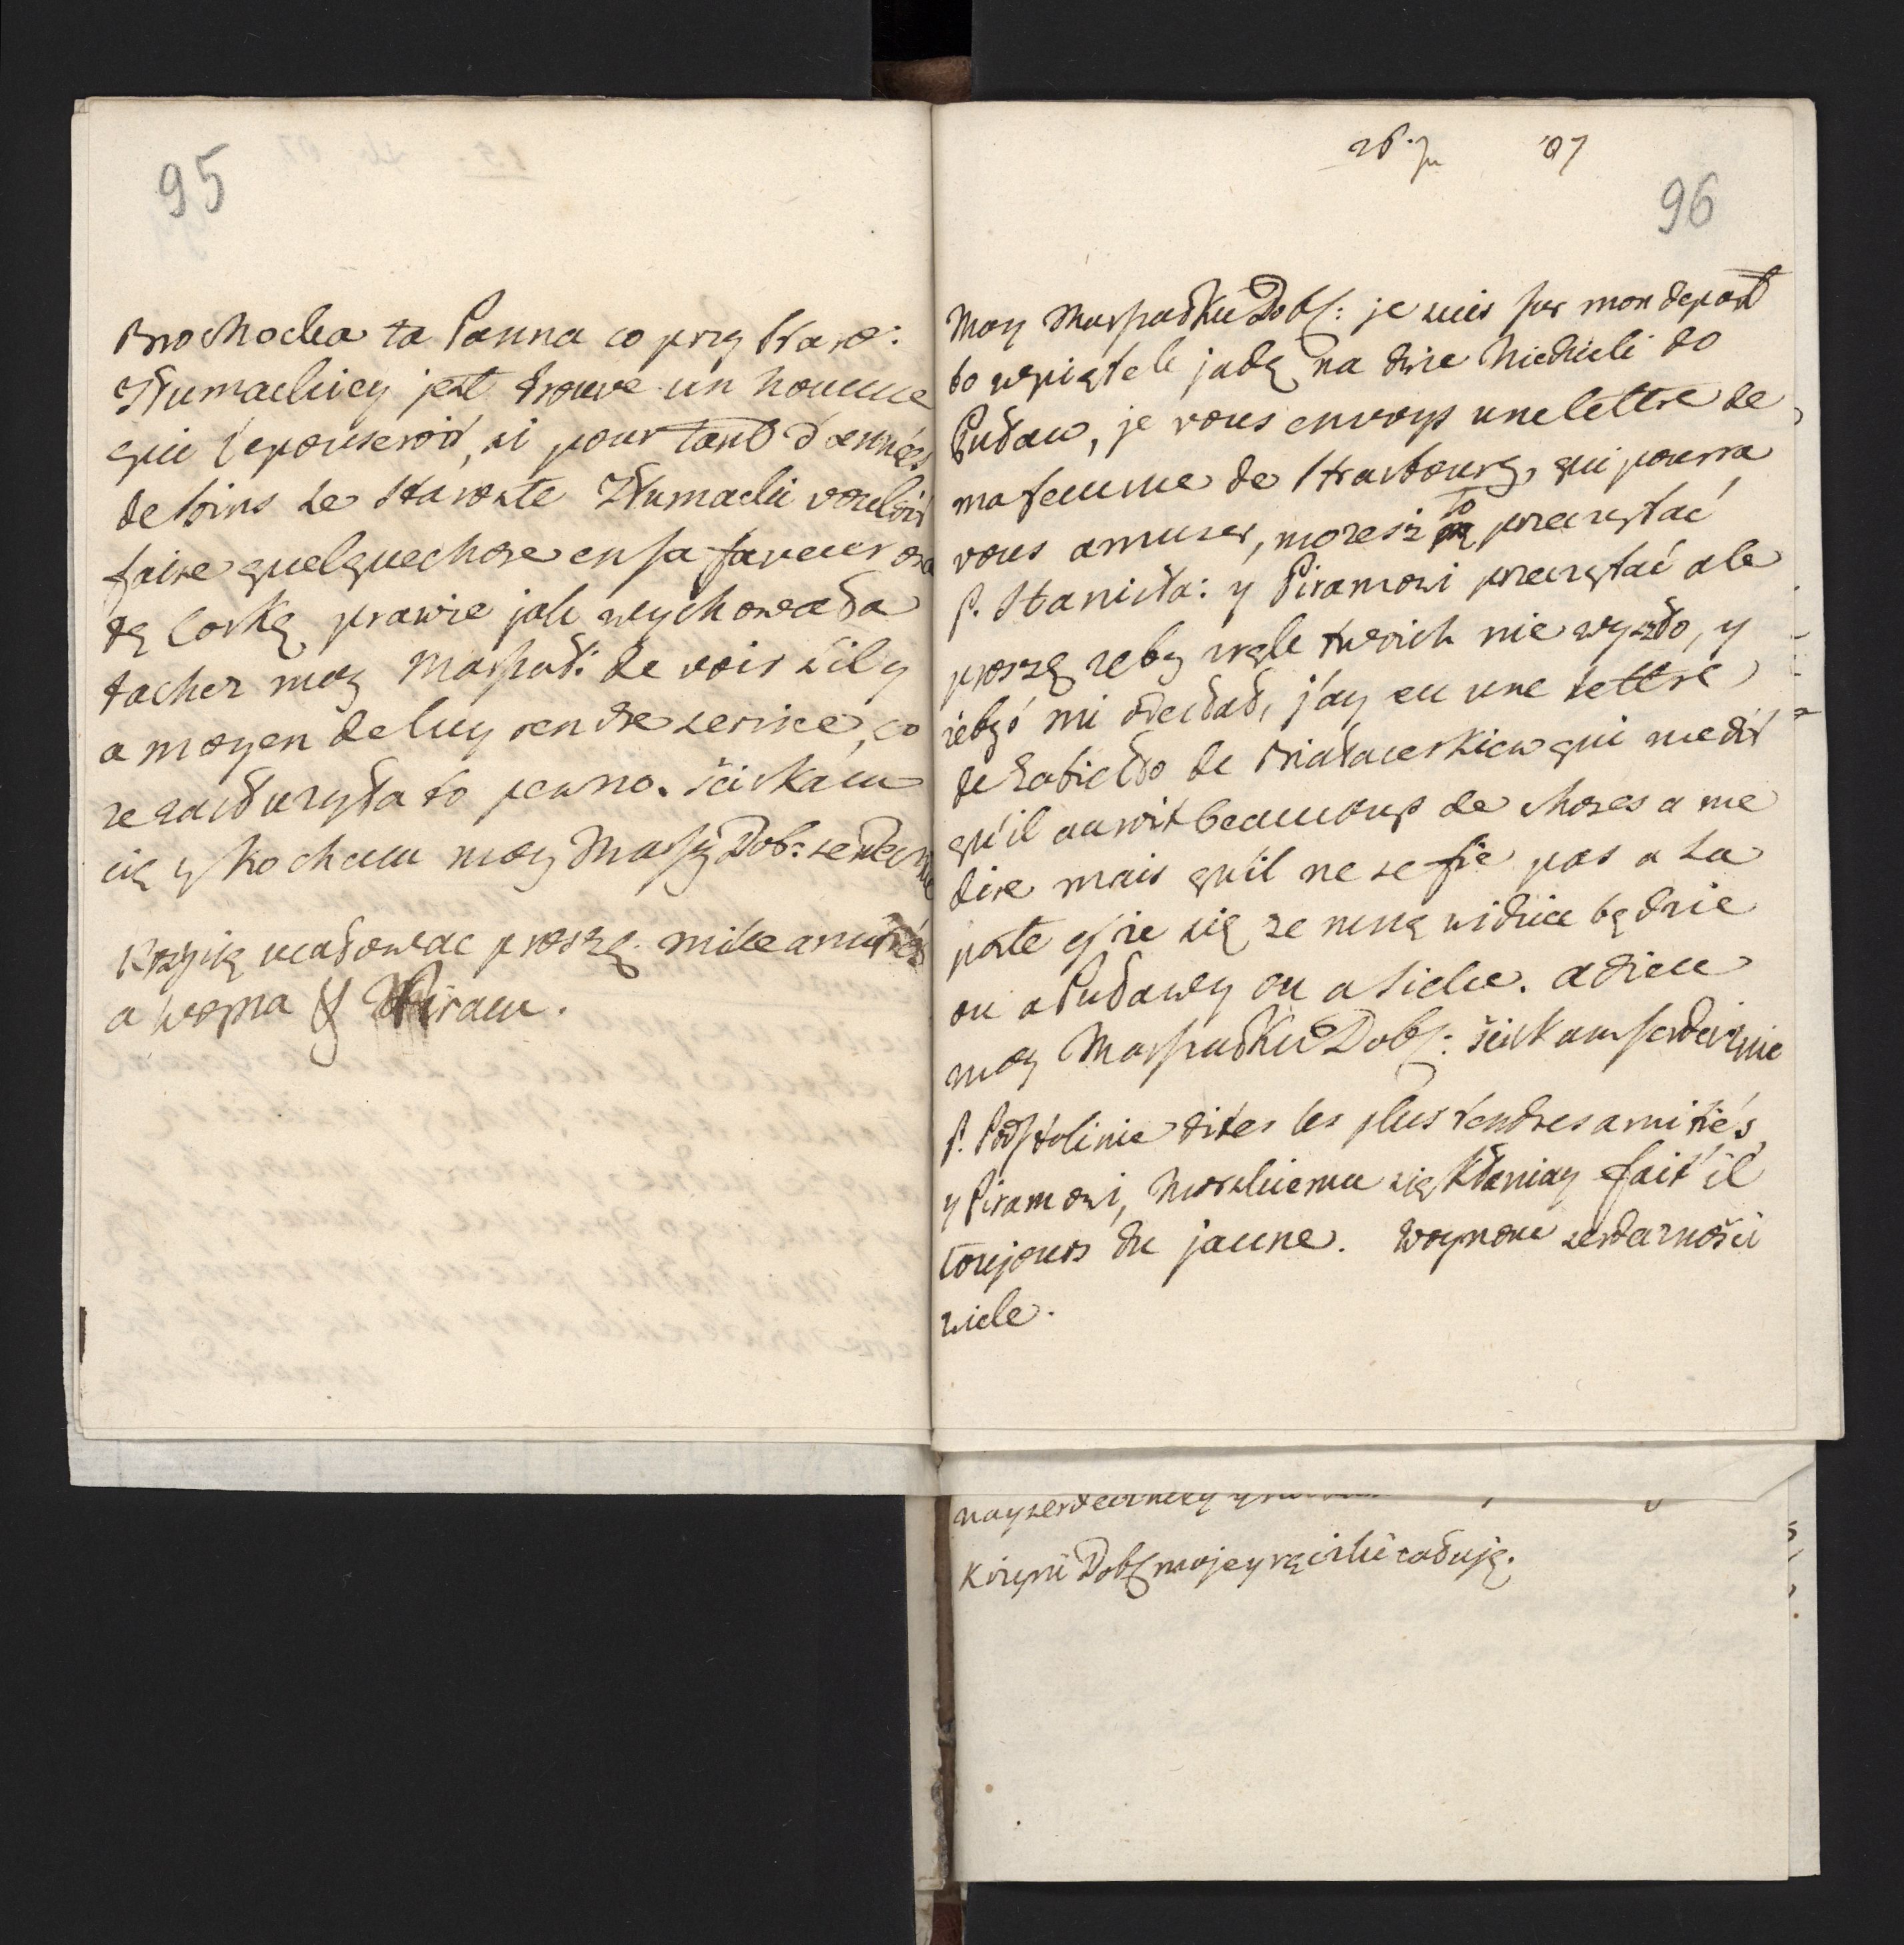 95
Brochocka ta Panna co przy Staro:
Tłumackiey jest trouve un homme
qui l'epouseroit, si pour tant d'années
de soins le Staroste Tłumacki vouloit
faire quelquechose en sa faveur ona
tę Corkę prawie jak wychowała
tacher moy Maspad: de voir s'il y
a moyen de luy rendre service, co
ze zasłużyła to pewno. sciskam
cię y kocham moy Masp Dob: serdecznie
Kozycię ucałować proszę. mille amitiés
a Woyna & Piram.
26. Ju '07
96
Moy Maspadku Dob: je suis sur mon depart
bo w piątek jadę na dwie Niedzieli do
Puław, je vous envoys une lettre de
ma femme de Strasbourg, qui pourra
vous amuser, mozesz to przeczytać
P. Stanisła: y Piramowi przeczytać ale
proszę zeby z rąk twoich nie wyszło, y
zebyś mi odesłał, j'ay eu une lettre
de Zabiełło de Białaczeskiew qui me dit
qu'il auroit beaucoup de choses a me
dire mais qu'il ne se fie pas a la
poste et ze się ze mną widzieć będzie
ou a Puławy ou a Sielce. adieu
moy Maspadku Dob: scickam serdecznie
P. Podstolinie dites les plus tendres amitiés,
y Piramowi, Morskiemu się kłaniay fait il
toujours du jaune. Woynom serdeczności
wiele.
nayserdeczniey
Xiężnie Dob mojey rączki całuję.